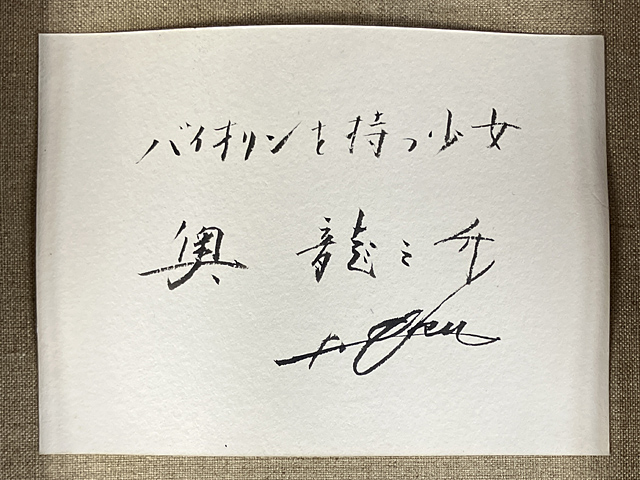 バイオリンを持つ少女
奥 龍之介